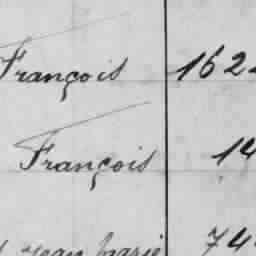 François 162
François 14
Jean Marie 74